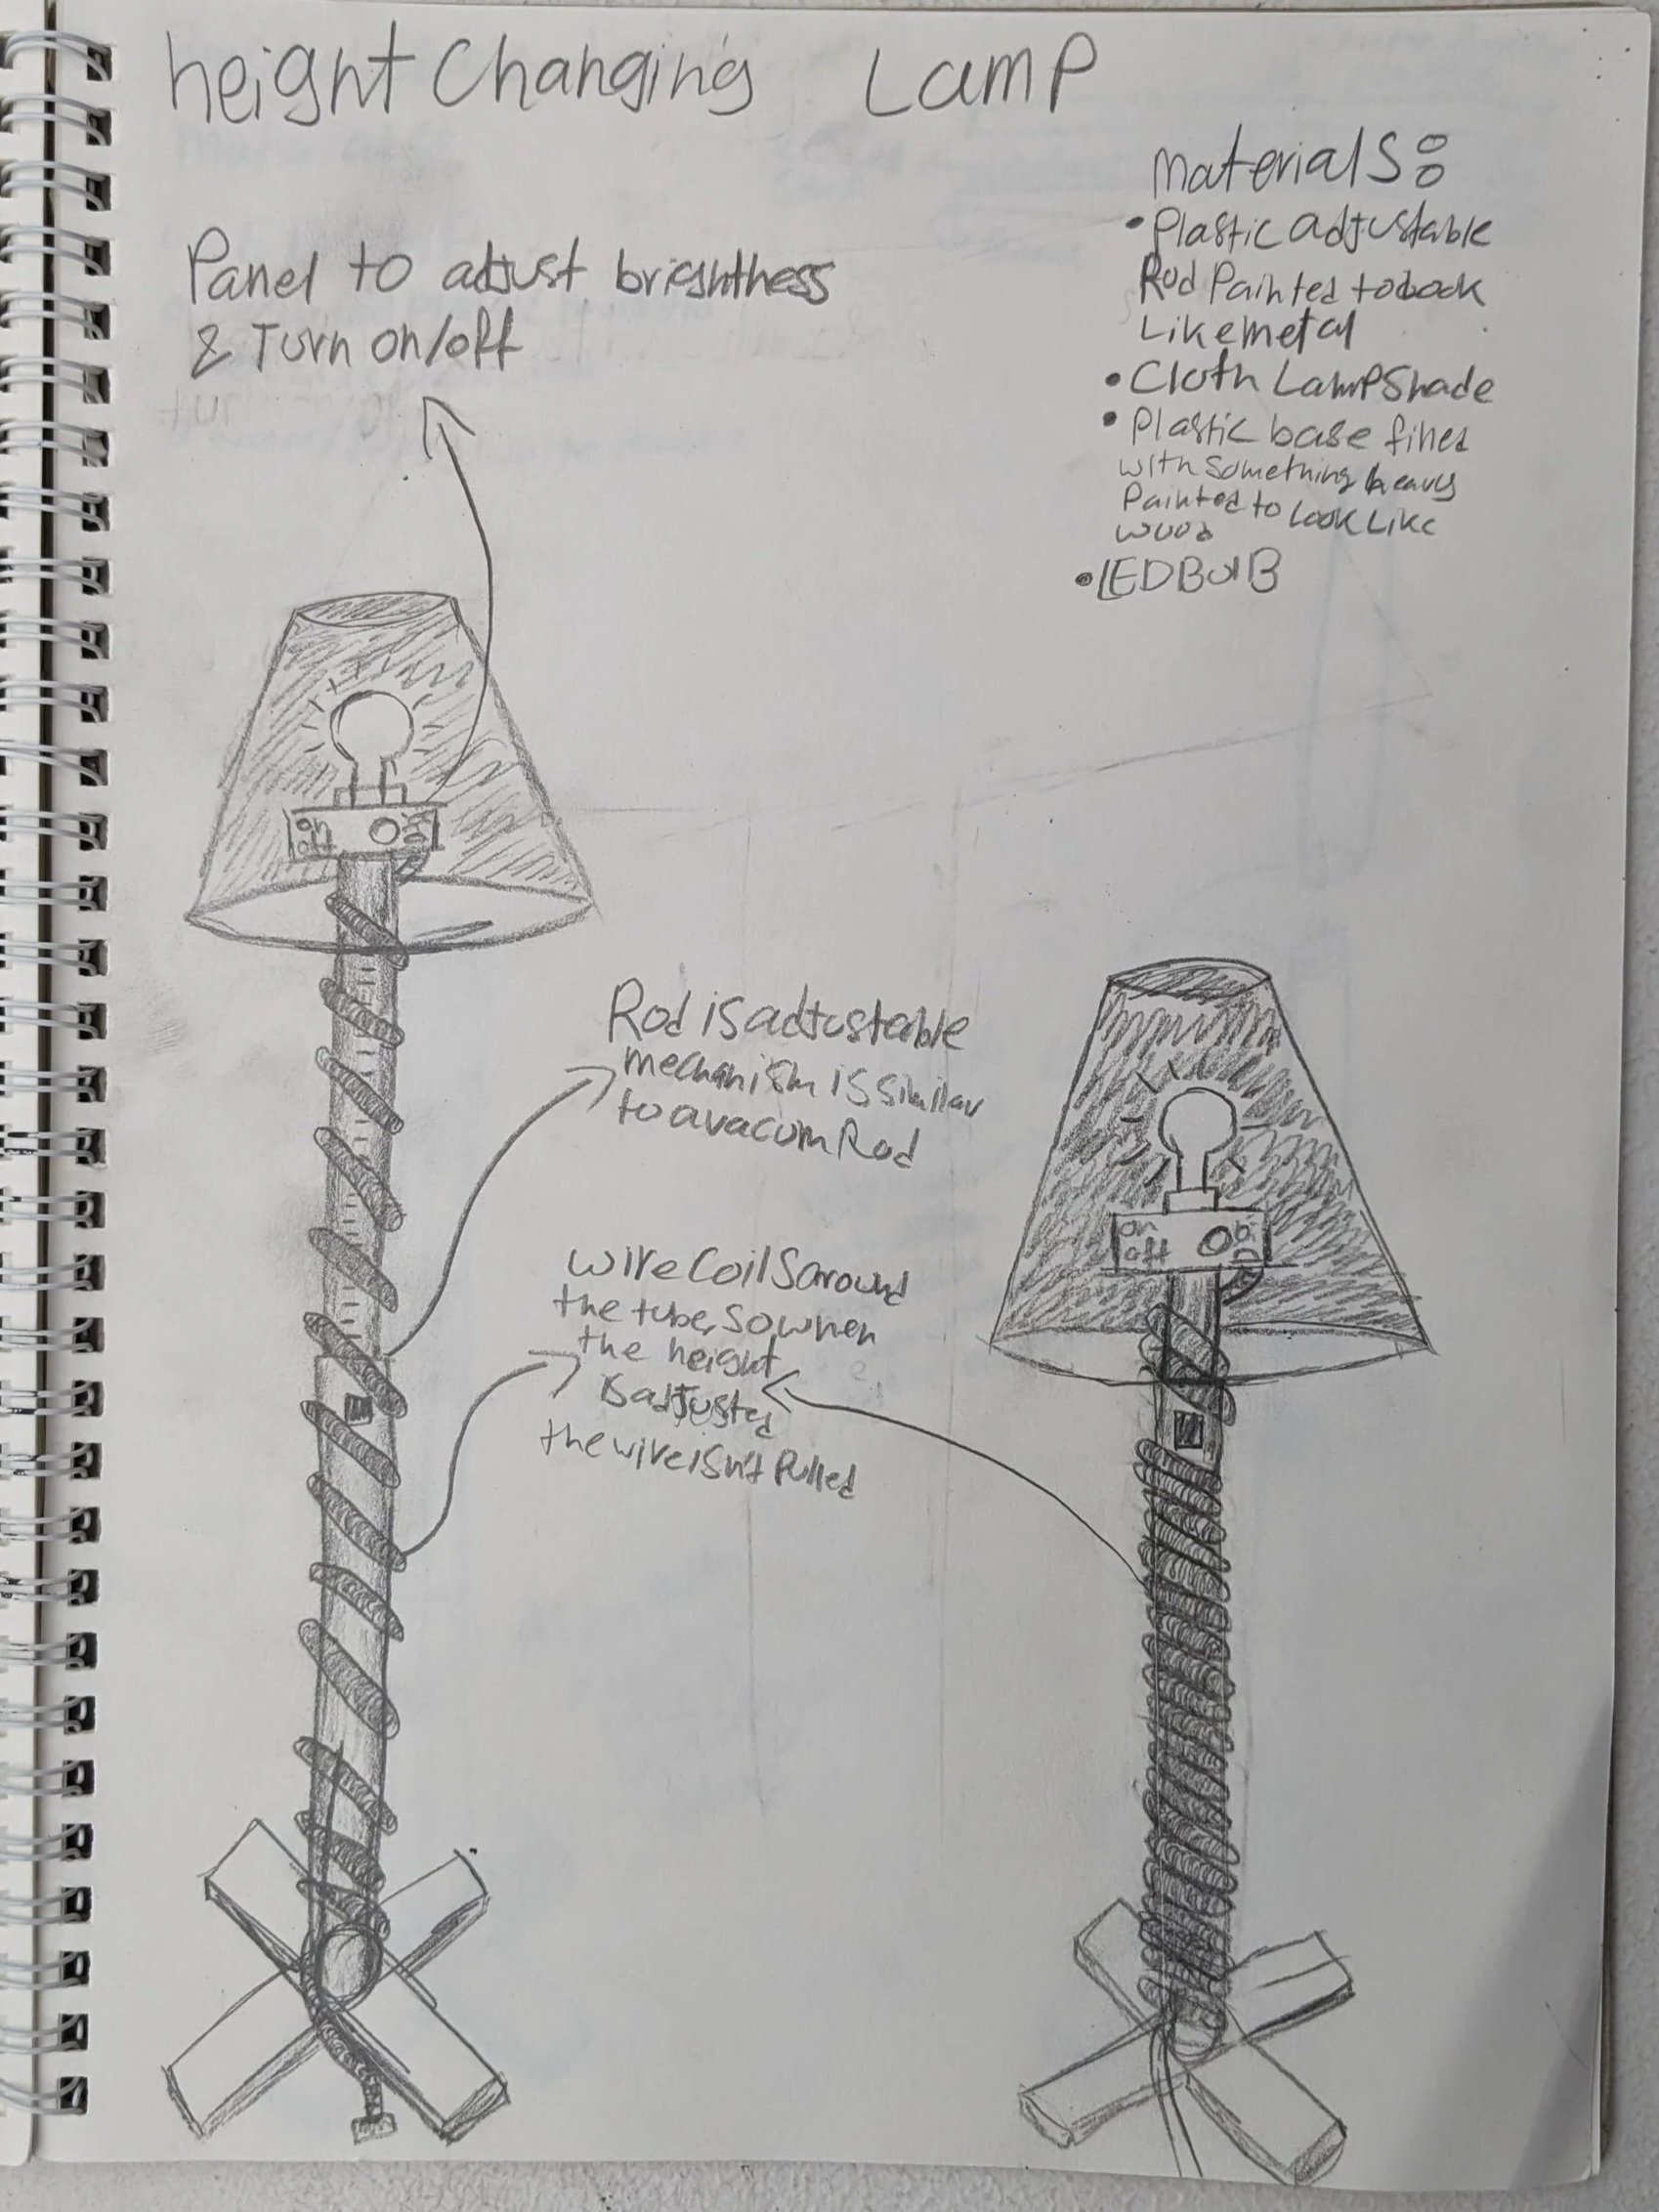 height Changing Lamp
Materials:
• Plastic adjustable
Rod Painted to look
Like metal
• Cloth LampShade
• Plastic base filled
with something heavy
Painted to look Like
wood
• LED BulB
Panel to adjust brightness
& Turn on/off
on
off
Rod is adjustable
mechanism is similar
to a vacum Rod
on
off
wire Coils around
the tube, so when
the height
is adjusted
the wire isn't Pulled